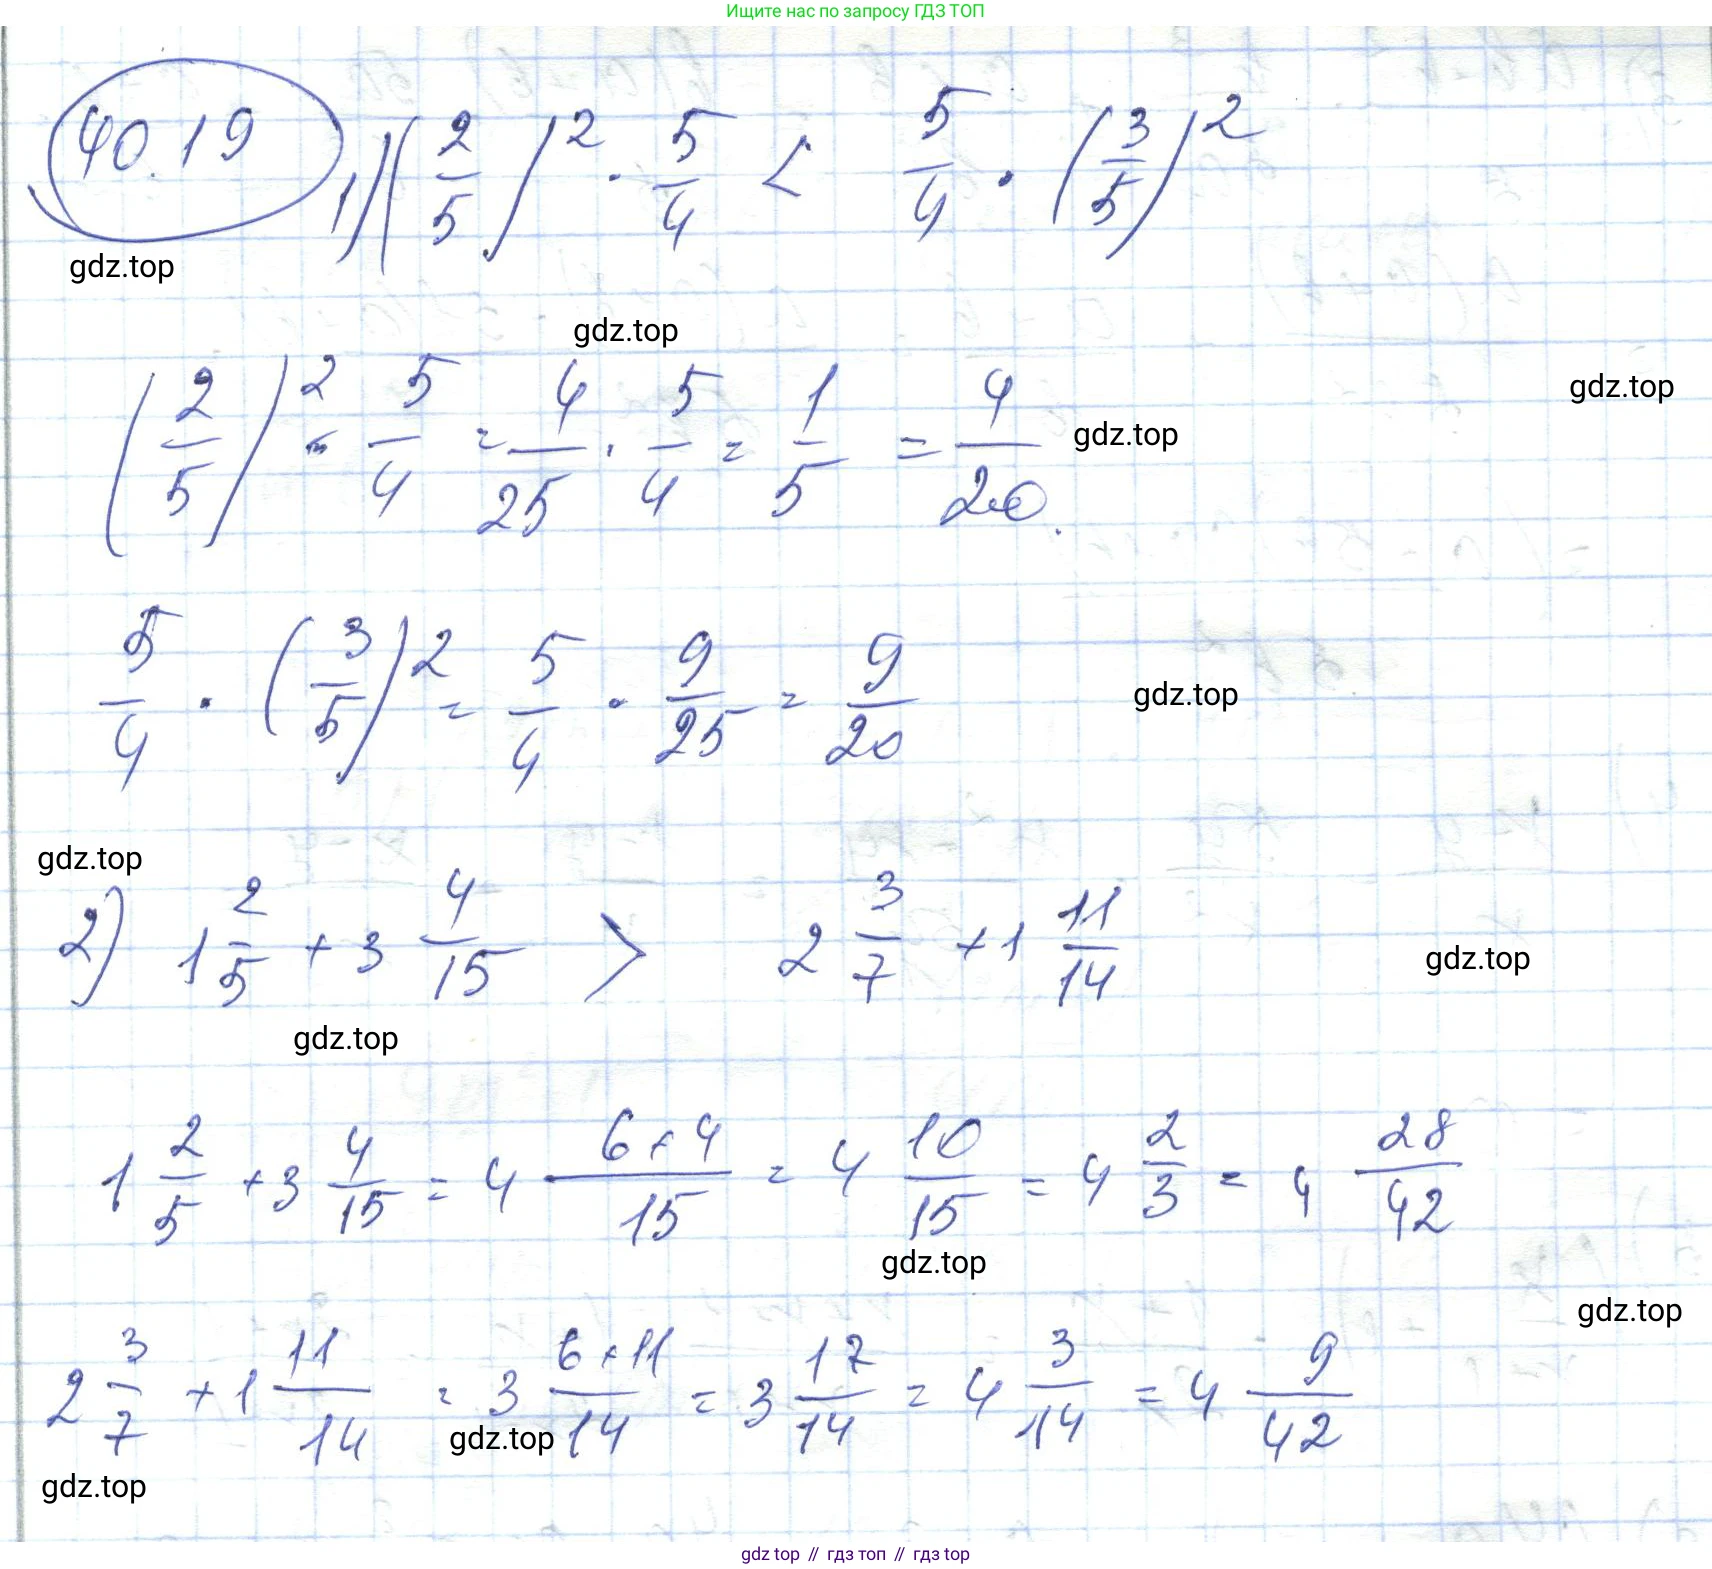 Ищите нас по запросу ГДЗ ТОП
40.19 1) (2/5)² · 5/4 < 5/4 · (3/5)²
gdz.top
gdz.top
gdz.top
(2/5)² · 5/4 = 4/25 · 5/4 = 1/5 = 4/20. gdz.top
5/4 · (3/5)² = 5/4 · 9/25 = 9/20 gdz.top
gdz.top
2) 1 2/5 + 3 4/15 > 2 3/7 + 1 11/14 gdz.top
gdz.top
1 2/5 + 3 4/15 = 4 6+4/15 = 4 10/15 = 4 2/3 = 4 28/42
gdz.top
gdz.top
2 3/7 + 1 11/14 = 3 6+11/14 = 3 17/14 = 4 3/14 = 4 9/42
gdz.top
gdz.top
gdz top // гдз топ // гдз top